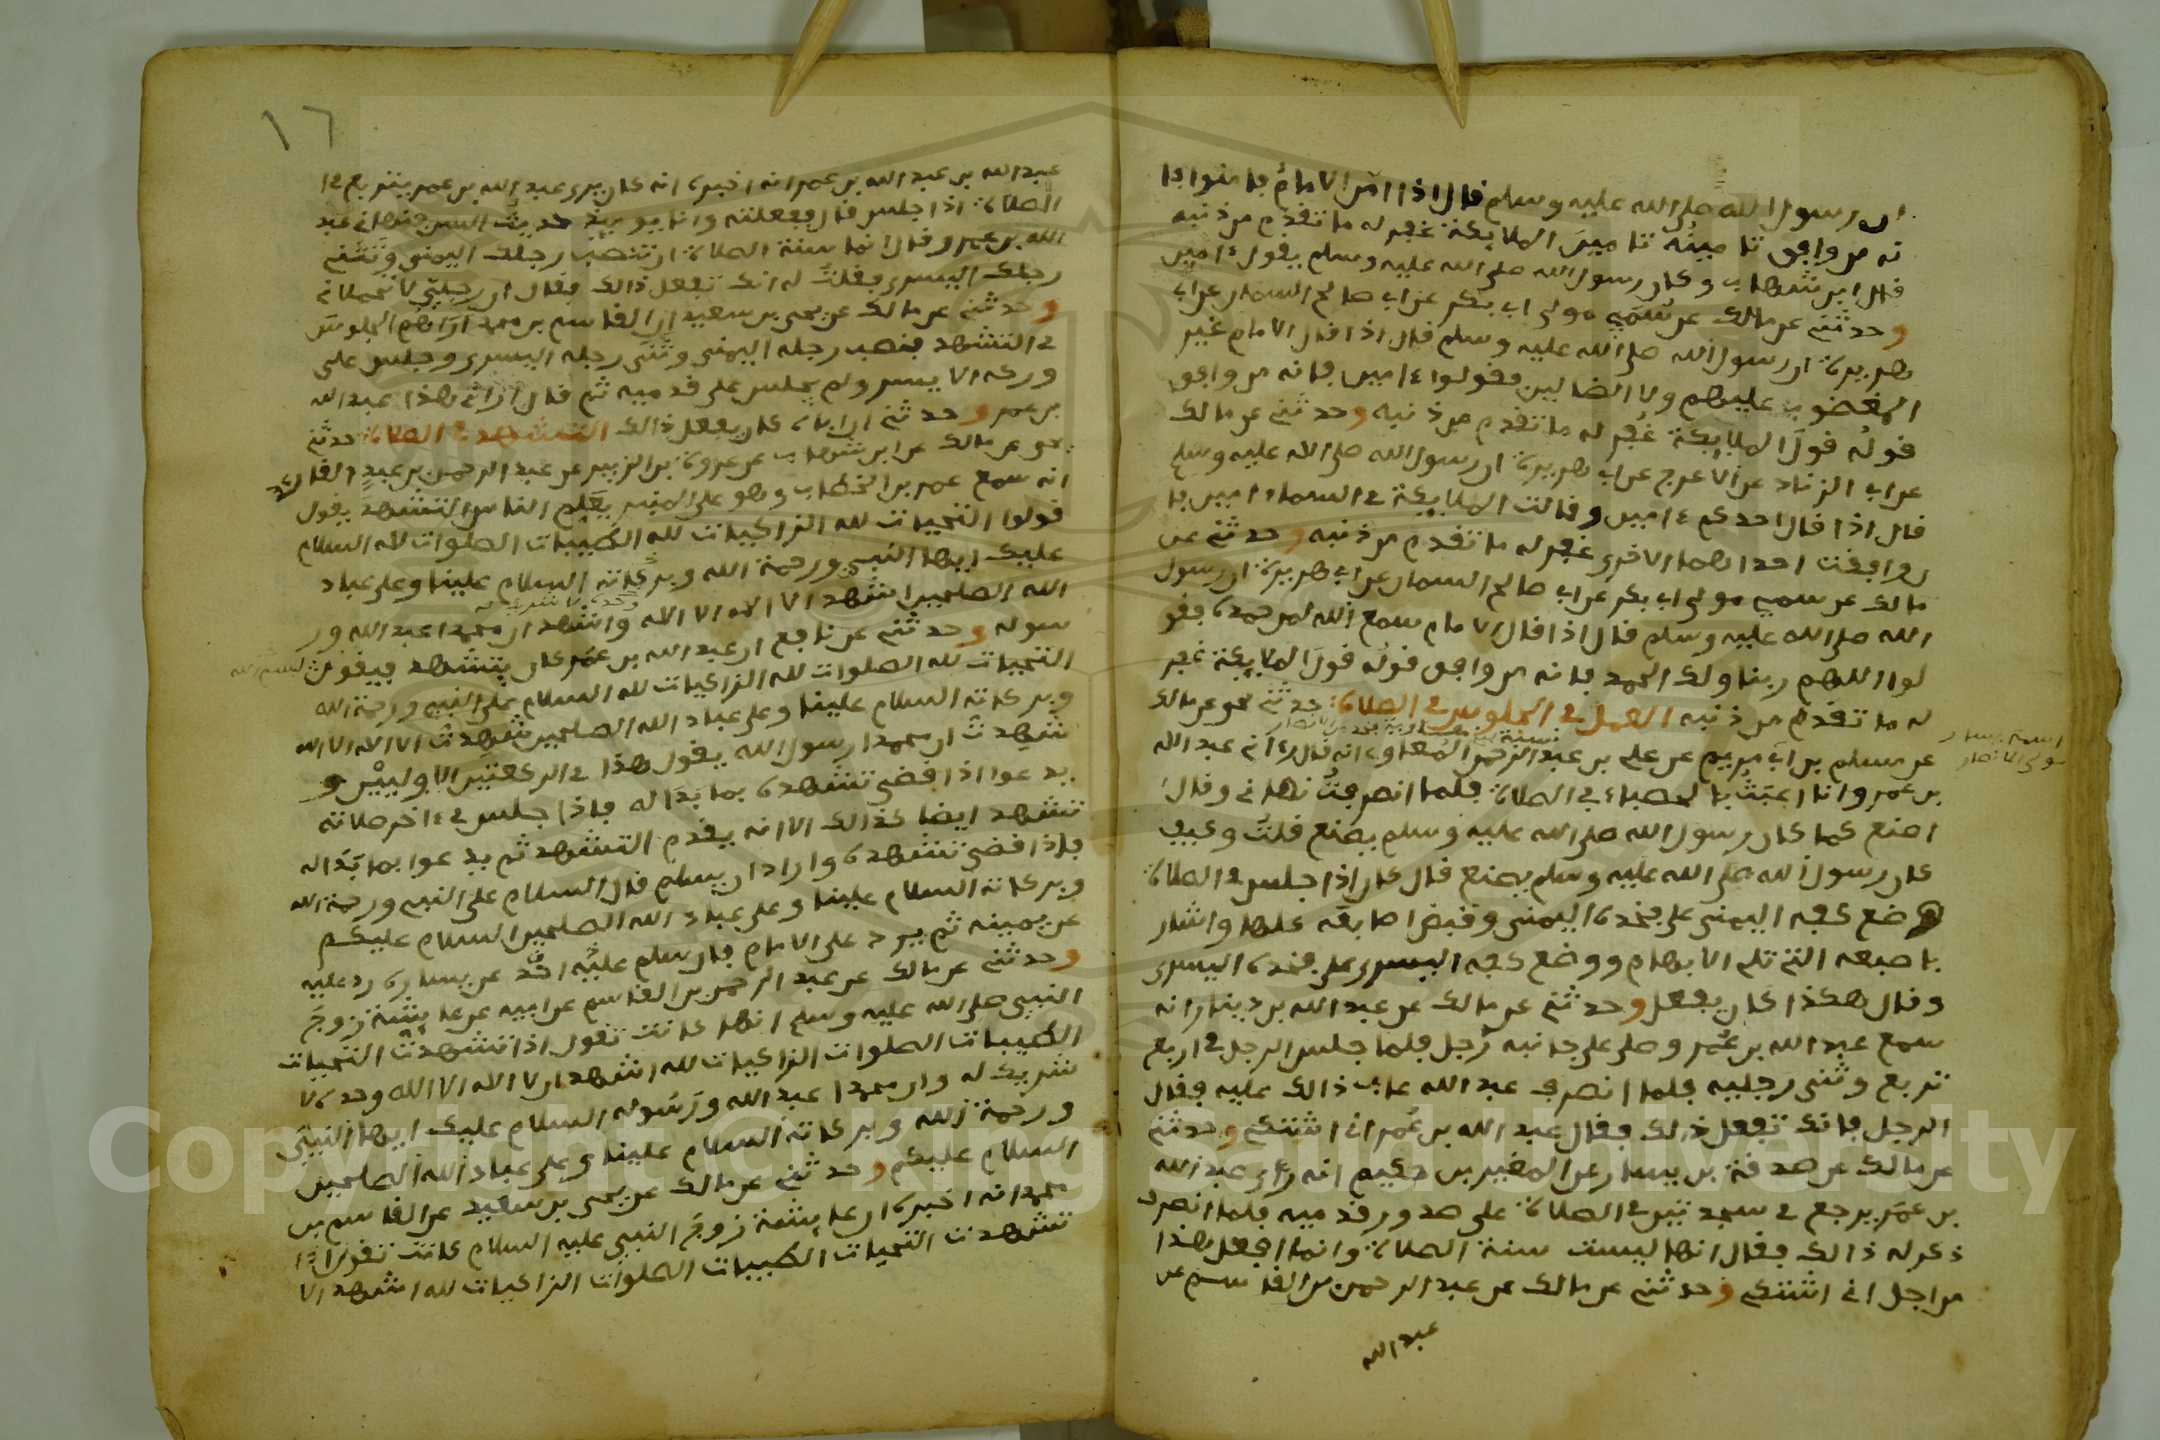 ان رسول الله صلى الله عليه وسلم قال اذا امن الامام فامنوا فا
نه من وافق تامينه تامين الملايكة غفر له ما تقدم من ذنبه
قال ابن شهاب وكان رسول الله صلى الله عليه وسلم يقول ءامين
وحدثني عن مالك عن سمي مولى ابي بكر عن ابي صالح السمان عن ابي
هريرة ان رسول الله صلى الله عليه وسلم قال اذا قال الامام غير
المغضوب عليهم ولا الضالين فقولوا ءامين فانه من وافق
قوله قول الملايكة غفر له ما تقدم من ذنبه وحدثني عن مالك
عن ابي الزناد عن الاعرج عن ابي هريرة ان رسول الله صلى الله عليه وسلم
قال اذا قال احدكم ءامين وقالت الملايكة في السماء امين فا
ن وافقت احداهما الاخرى غفر له ما تقدم من ذنبه وحدثني عن
مالك عن سمي مولى ابي بكر عن ابي صالح السمان عن ابي هريرة ان رسول
الله صلى الله عليه وسلم قال اذا قال الامام سمع الله لمن حمده فقو
لوا اللهم ربنا ولك الحمد فانه من وافق قوله قول الملايكة غفر
له ما تقدم من ذنبه العمل في الجلوس في الصلاة حدثني يحيى عن مالك
عن مسلم بن ابي مريم عن علي بن عبد الرحمن المعاوي انه قال رءاني عبد الله
اسمه يسار
مولى الانصار
بن عمر وانا اعبث بالحصباء في الصلاة فلما انصرفت نهاني وقال
اصنع كما كان رسول الله صلى الله عليه وسلم يصنع قلت وكيف
كان رسول الله صلى الله عليه وسلم يصنع قال كان اذا جلس في الصلاة
وضع كفه اليمنى على فخده اليمنى وقبض اصابعه كلها واشار
باصبعه التي تلي الابهام ووضع كفه اليسرى على فخده اليسرى
وقال هكذا كان يفعل وحدثني عن مالك عن عبد الله بن دينار انه
سمع عبد الله بن عمر وصلى على جانبه رجل فلما جلس الرجل في اربع
تربع وثنى رجليه فلما انصرف عبد الله عاب ذالك عليه فقال
الرجل فانك تفعل ذلك فقال عبد الله بن عمر اني اشتكي وحدثني
عن مالك عن صدقة بن يسار عن المغير بن حكيم انه رءى عبد الله
بن عمر يرجع في سجدتين في الصلاة على صدور قدميه فلما انصرف
ذكر له ذالك فقال انها ليست سنة الصلاة وانما افعل هذا
من اجل اني اشتكي وحدثني عن مالك عن عبد الرحمن بن القاسم عن
عبد الله
١٦
عبد الله بن عبد الله بن عمر انه اخبره انه كان يرى عبد الله بن عمر يتربع في ا
لصلاة اذا جلس قال ففعلته وانا يوميذ حديث السن فنهاني عبد
الله بن عمر وقال انما سنة الصلاة ان تنصب رجلك اليمنى وتثني
رجلك اليسرى فقلت له انك تفعل ذالك فقال ان رجلي لا تحملاني
وحدثني عن مالك عن يحيى بن سعيد ان القاسم بن محمد اراهم الجلوس
في التشهد فنصب رجله اليمنى وثنى رجله اليسرى وجلس على
وركه الايسر ولم يجلس على قدميه ثم قال اراني هذا عبد الله
بن عمر وحدثني ان اباه كان يفعل ذالك التشهد في الصلاة حدثني
يحيى عن مالك عن ابن شهاب عن عروة بن الزبير عن عبد الرحمن بن عبد القارى
انه سمع عمر بن الخطاب وهو على المنبر يعلم الناس التشهد يقول
قولوا التحيات لله الزاكيات لله الطيبات الصلوات لله السلام
عليك ايها النبي ورحمة الله وبركاته السلام علينا وعلى عباد
الله الصالحين اشهد الا الاه الا الله واشهد ان محمدا عبد الله ور
سوله وحدثني عن نافع ان عبد الله بن عمر كان يتشهد فيقول بسم الله
التحيات لله الصلوات لله الزاكيات لله السلام على النبي ورحمة الله
وبركاته السلام علينا وعلى عباد الله الصالحين شهدت الا الاه الا الله
شهدت ان محمدا رسول الله يقول هذا في الركعتين الاوليين و
يدعوا اذا قضى تشهده بما بدا له فاذا جلس في ءاخر صلاته
تشهد ايضا كذالك الا انه يقدم التشهد ثم يدعوا بما بدا له
فاذا قضى تشهده واراد ان يسلم قال السلام على النبي ورحمة الله
وبركاته السلام علينا وعلى عباد الله الصالحين السلام عليكم
عن يمينه ثم يرد على الامام فان سلم عليه احد عن يساره رد عليه
وحدثني عن مالك عن عبد الرحمن بن القاسم عن ابيه عن عايشة زوج
النبي صلى الله عليه وسلم انها كانت تقول اذا تشهدت التحيات
الطيبات الصلوات الزاكيات لله اشهد ان لا الاه الا الله وحده لا
شريك له وان محمدا عبد الله ورسوله السلام عليك ايها النبي
ورحمة الله وبركاته السلام علينا وعلى عباد الله الصالحين
السلام عليكم وحدثني عن مالك عن يحيى بن سعيد عن القاسم بن
محمد انه اخبره ان عايشة زوج النبي عليه السلام كانت تقول اذا
تشهدت التحيات الطيبات الصلوات الزاكيات لله اشهد الا
Copyright © King Saud University